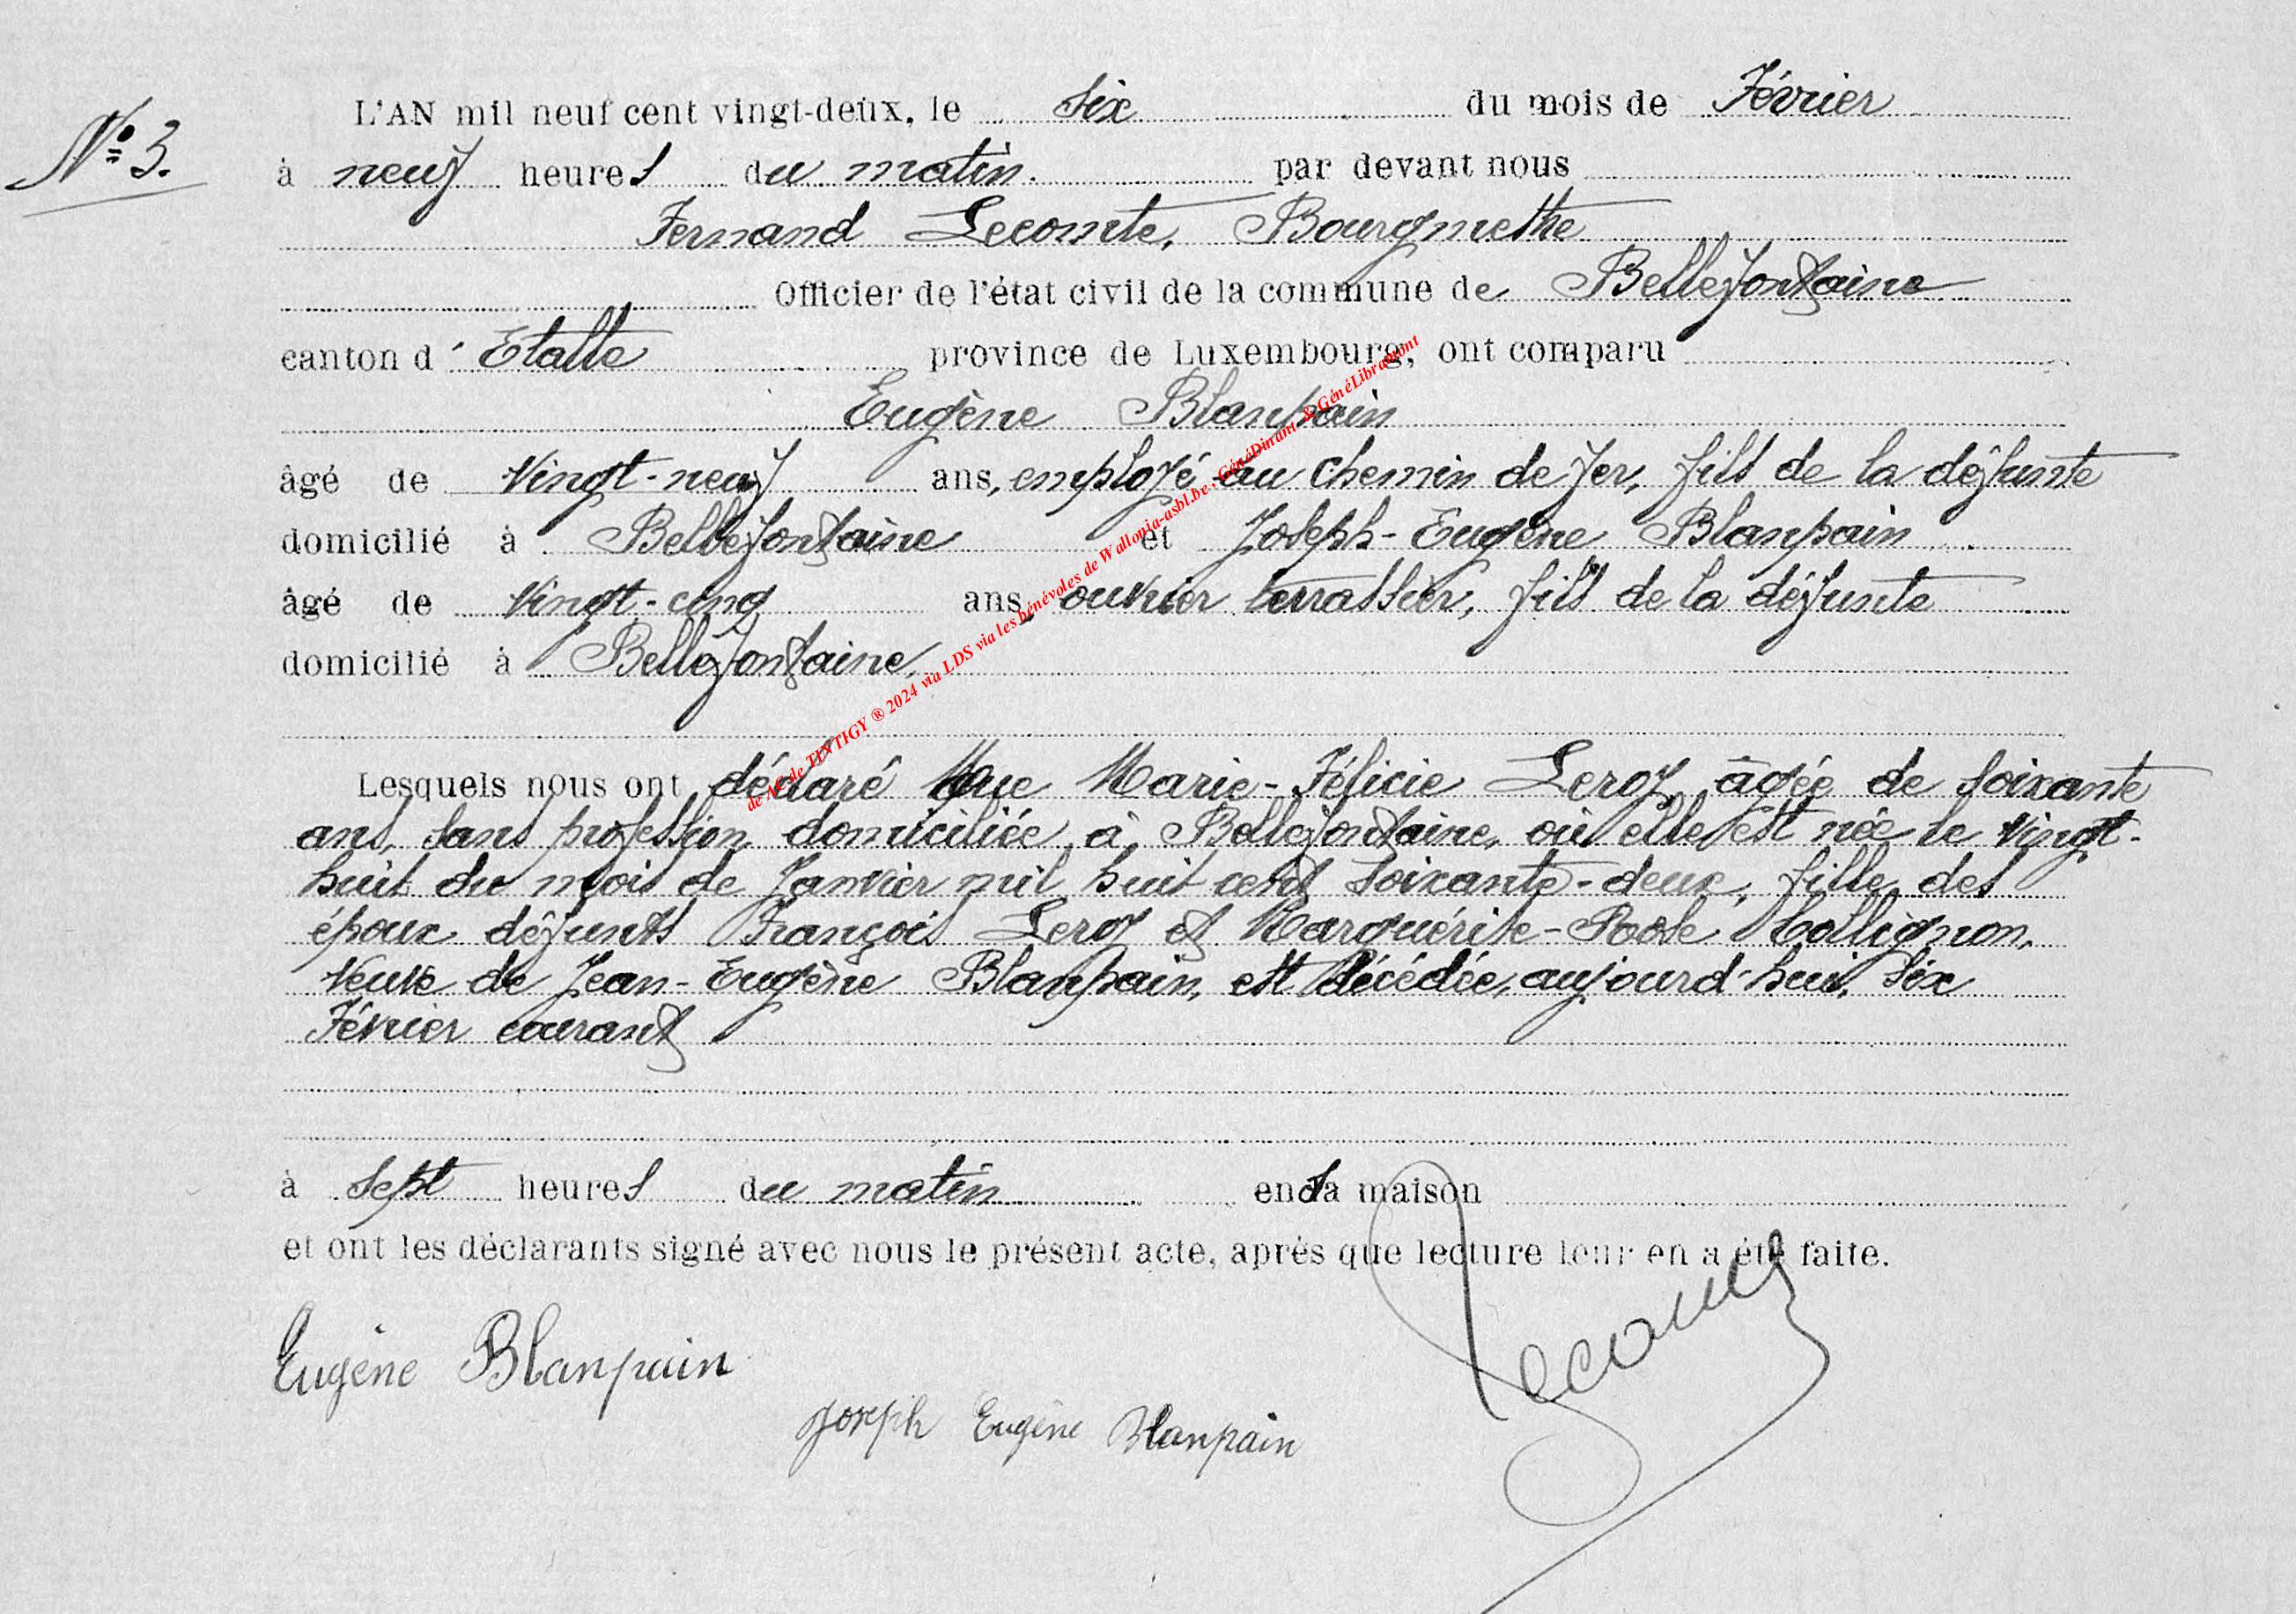 N° 3.
L'AN mil neuf cent vingt-deux, le six du mois de Février
à neuf heures du matin. par devant nous
Fernand Lecomte, Bourgmestre
Officier de l'état civil de la commune de Bellefontaine
canton d'Etalle province de Luxembourg, ont comparu
Eugène Blanpain
âgé de vingt-neuf ans, employé au chemin de fer, fils de la défunte
domicilié à Bellefontaine et Joseph-Eugène Blanpain
âgé de vingt-cinq ans, ouvrier terrassier, fils de la défunte
domicilié à Bellefontaine.
Lesquels nous ont déclaré que Marie-Félicie Leroy âgée de soixante
ans, sans profession domiciliée à Bellefontaine, où elle est née le vingt-
huit du mois de Janvier mil huit cent soixante-deux, fille des
époux défunts François Leroy et Marguérite-Rose Collignon,
veuve de Jean-Eugène Blanpain, est décédée, aujourd'hui, six
Février courant
à sept heures du matin en sa maison
et ont les déclarants signé avec nous le présent acte, après que lecture leur en a été faite.
Eugène Blanpain
Joseph Eugène Blanpain
Lecomte
de AC de TINTIGY ® 2024 via LDS via les bénévoles de Wallonia-asbl.be - GénéDinant & GénéLibramont